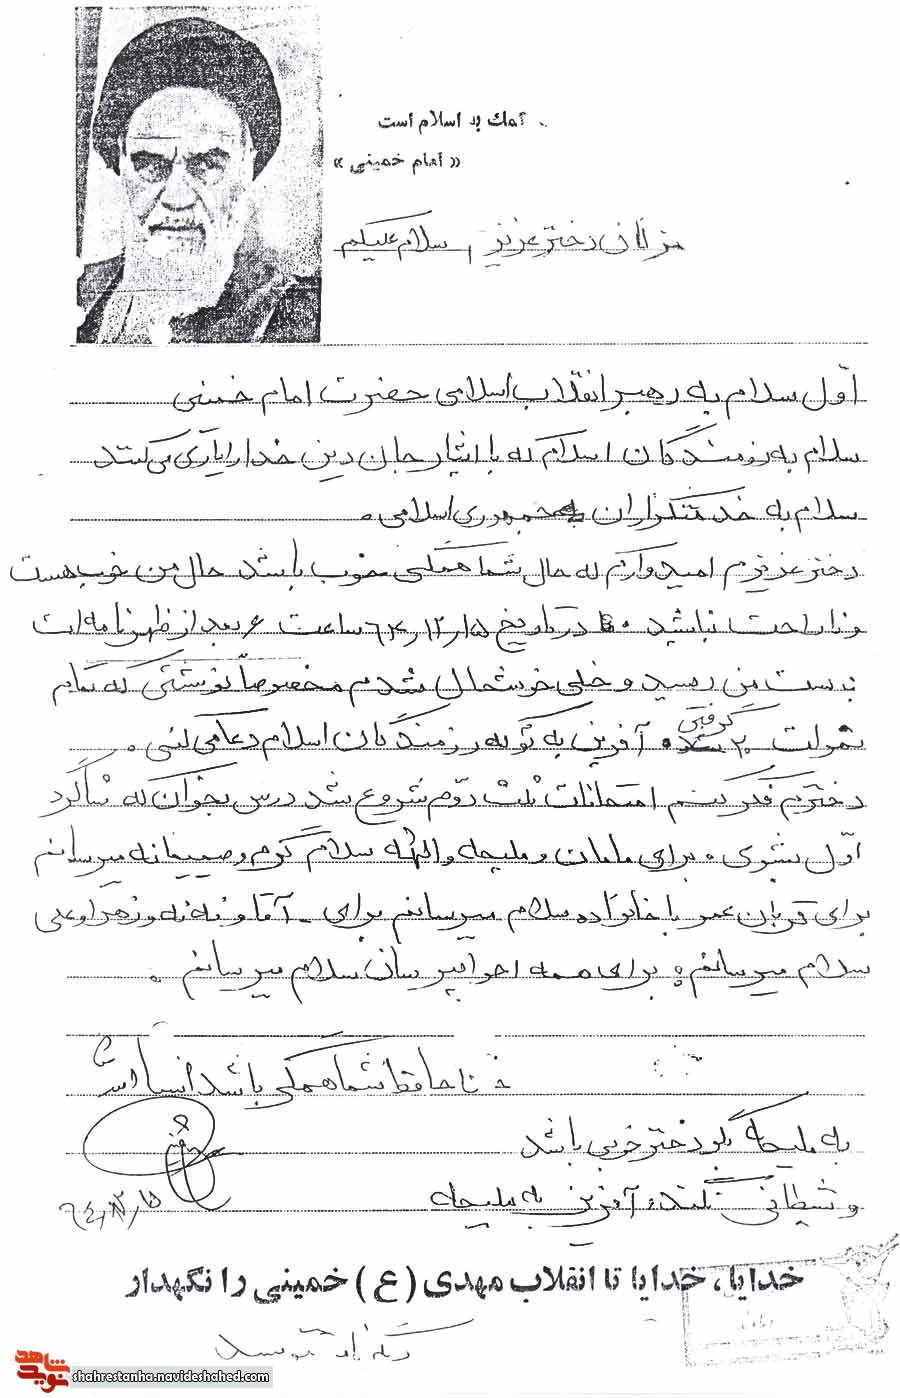 کمک به اسلام است
« امام خمینی »
دختر عزیزم سلام علیکم
اوّل سلام به رهبر انقلاب اسلامی حضرت امام خمینی
سلام به رزمندگان اسلام که با ایثار جان دین خدا را یاری می‌کنند
سلام به خدمتگزاران جمهوری اسلامی.
دختر عزیزم امیدوارم که حال شما همگی خوب باشد حال من خوب هست
و ناراحت نباشید. در تاریخ 64,12,15 ساعت 6 بعد از ظهر نامه‌ات
بدست من رسید و خیلی خوشحال شدم مخصوصاً نوشتی که تمام
نمرات 20 گرفتی آفرین به تو که رزمندگان اسلام دعا می‌کنی.
دخترم فکر کنم امتحانات ثلث دوّم شروع شد درس بخوان که شاگرد
اوّل بشوی. برای مامان و ملیحه و الهه سلام گرم و صمیمانه میرسانم
برای قربان عمو با خانواده سلام میرسانم برای آقا و ننه و زهرا و علی
سلام میرسانم برای همه احوالپرسان سلام میرسانم.
خداحافظ شما همگی باشد انشاءالله
به ملیحه بگو دختر خوبی باشد
و شیطانی نکند، آفرین به ملیحه
64,12,15
خدایا، خدایا تا انقلاب مهدی (ع) خمینی را نگهدار
نوید شاهد
shahrestanha.navideshahed.com